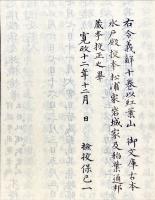 右令義解十卷以紅葉山　御文庫古本
水戸殿校本松浦家岩城家及稲葉通邦
蔵本校正之畢
寛政十二年十二月　日　　檢校保己一